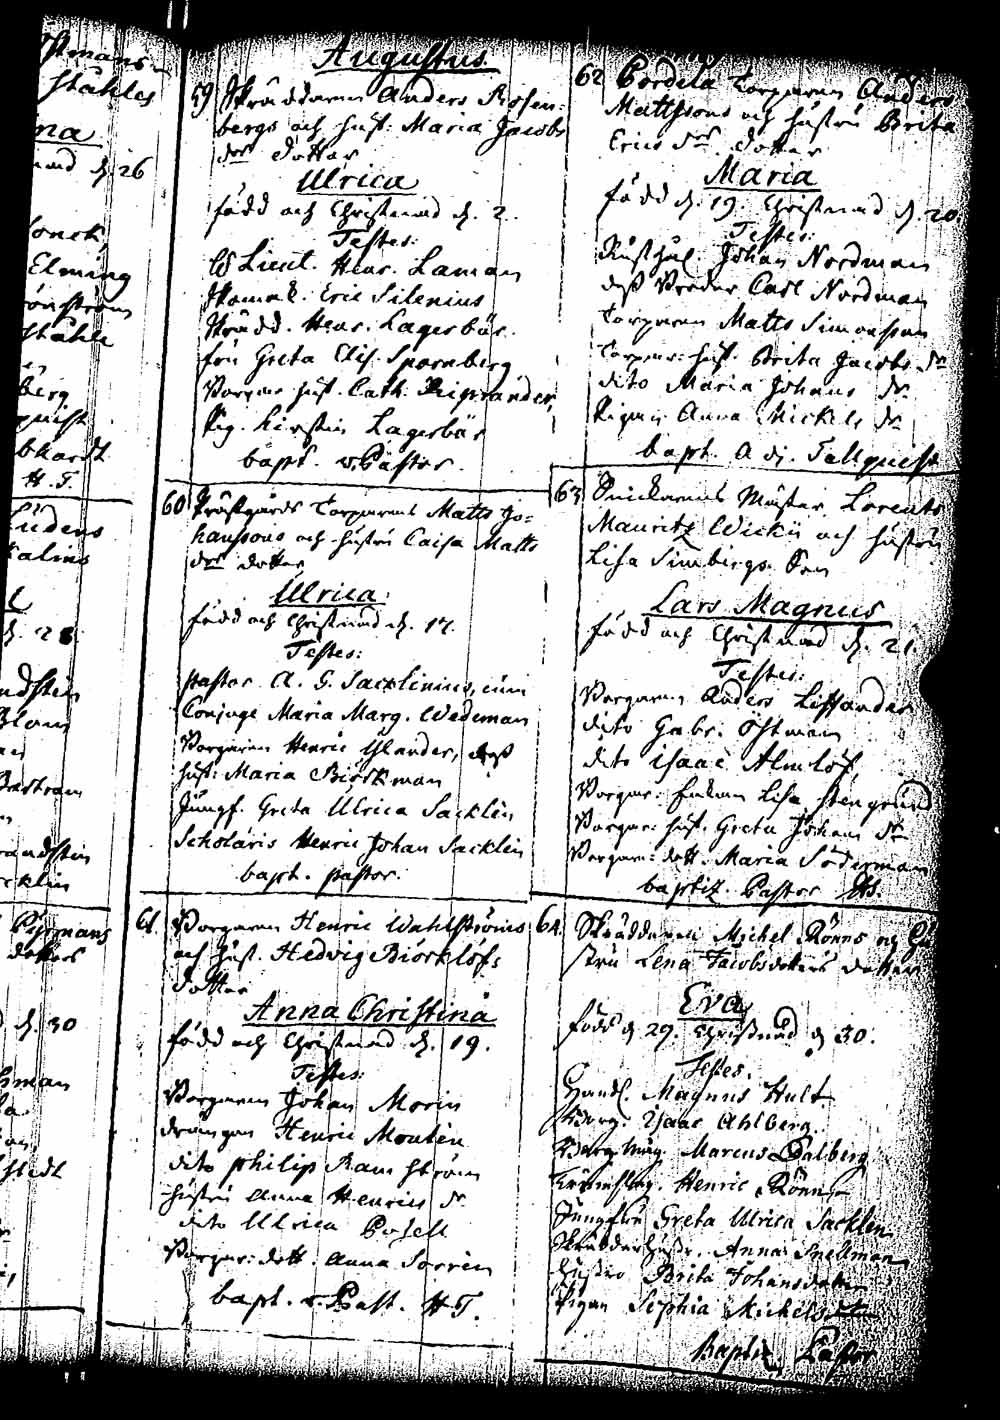 stmans
ståhles
ina
d. 26
lonck
Elming
rönström
ståhle
berg
quist
bhardt
H. T.
Lüdens
kalins
d. 28
ndstén
Blom
Bartram
randstén
cklin
Pijrmans
dotters
d. 30
hman
stedt
Augustus.
59 Skräddaren Anders Rosen:
bergs och hust: Maria Jacobs
dr dotter
Ulrica
född och Christnad d. 2.
Testes:
Lieut. Henr. Laman
Eric Silenius
Skrädd. Henr. Lagerbär.
fru Greta Elis. Spornberg
Borgar hust. Cath. Riprander,
Pig. Kirstin Lagerbär
bapt. v. Pastor.
60 Prästgårds Torparens Matts Jo=
hanssons och hustru Caisa Matts
dr dotter
Ulrica
född och Christnad d. 17.
Testes:
Pastor A. G. Sacklinius, cum
Conjuge Maria Marg. Wedeman
Borgaren Henric Ylander, dess
hust: Maria Biörkman
Jungf. Greta Ulrica Sacklén
Scholaris Henric Johan Sacklén
bapt. pastor.
61. Borgaren Henric Wahlströms
och hust. Hedvig Biörklöfs
dotter
Anna Christina
född och Christnad d. 19.
Testes:
Borgaren Johan Morin
drängen Henric Montén
dito philip Ramström
hustru Anna Henrics dr
dito Ulrica Posell
Borgar: dott. Anna Sorrin
bapt. v. Past. H T.
62 Torparen Anders
Mattssons och hustru Brita
Erics dr dotter
Maria
född d. 19. Christnad d. 20.
Testes:
Rusthål. Johan Nordman
dess Broder Carl Nordman
Torparen Matts Simonsson
Torpar: hust. Brita Jacobs dr
dito Maria Johans dr
Pigan Anna Mickels dr
bapt. Adj. Tallquist
63 Snickarens Mäster Lorents
Mauritz Wickii och hustru
Lisa Simbergs Son
Lars Magnus
född och Christnad d. 21.
Testes:
Borgaren Anders Lissander
dito Gabr. Östman
dito isaac Almlöf,
Borgar: Enkan Lisa stengrund
Borgar: hust. Greta Johans dr
Borgar: dott. Maria Söderman
baptiz. Pastor
64. Skräddaren Michel Rönns og Hu
stru Lena Jacobsdotters dotter
Eva
född d 29. Christnad d 30.
Testes.
Handl. Magnus Hult
Borg. Isaac Ahlberg.
Marcus Palberg
Henric Rönn
Jungfru Greta Ulrica Sacklen
Anna Snellman
Hustro Brita Johansdotter
Pigan Sophia Mickelsdotter
Baptiz. Pastor